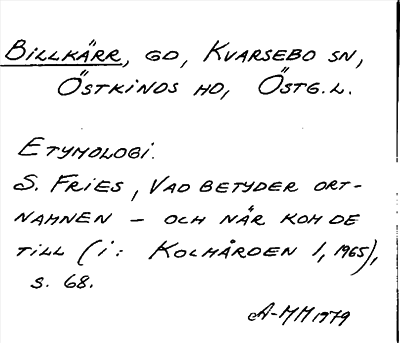 BILLKÄRR, GD, KVARSEBO SN,
ÖSTKINDS HD, ÖSTG.L.
ETYMOLOGI.
S. FRIES, VAD BETYDER ORT-
NAMNEN – OCH NÄR KOM DE
TILL (i: KOLMÅRDEN 1, 1965),
S. 68.
A-MM 1979